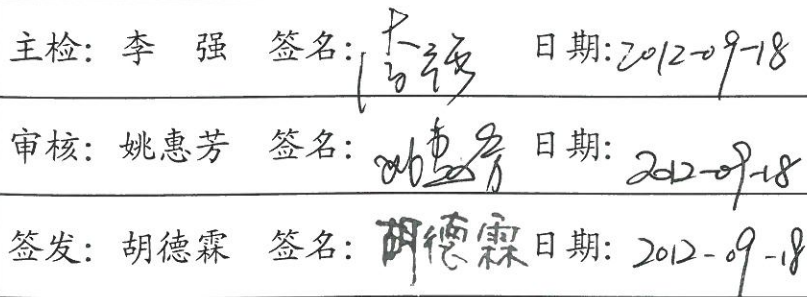 主检: 李 强 签名: 李强 日期: 2012-09-18
审核: 姚惠芳 签名: 姚惠芳 日期: 2012-09-18
签发: 胡德霖 签名: 胡德霖 日期: 2012-09-18